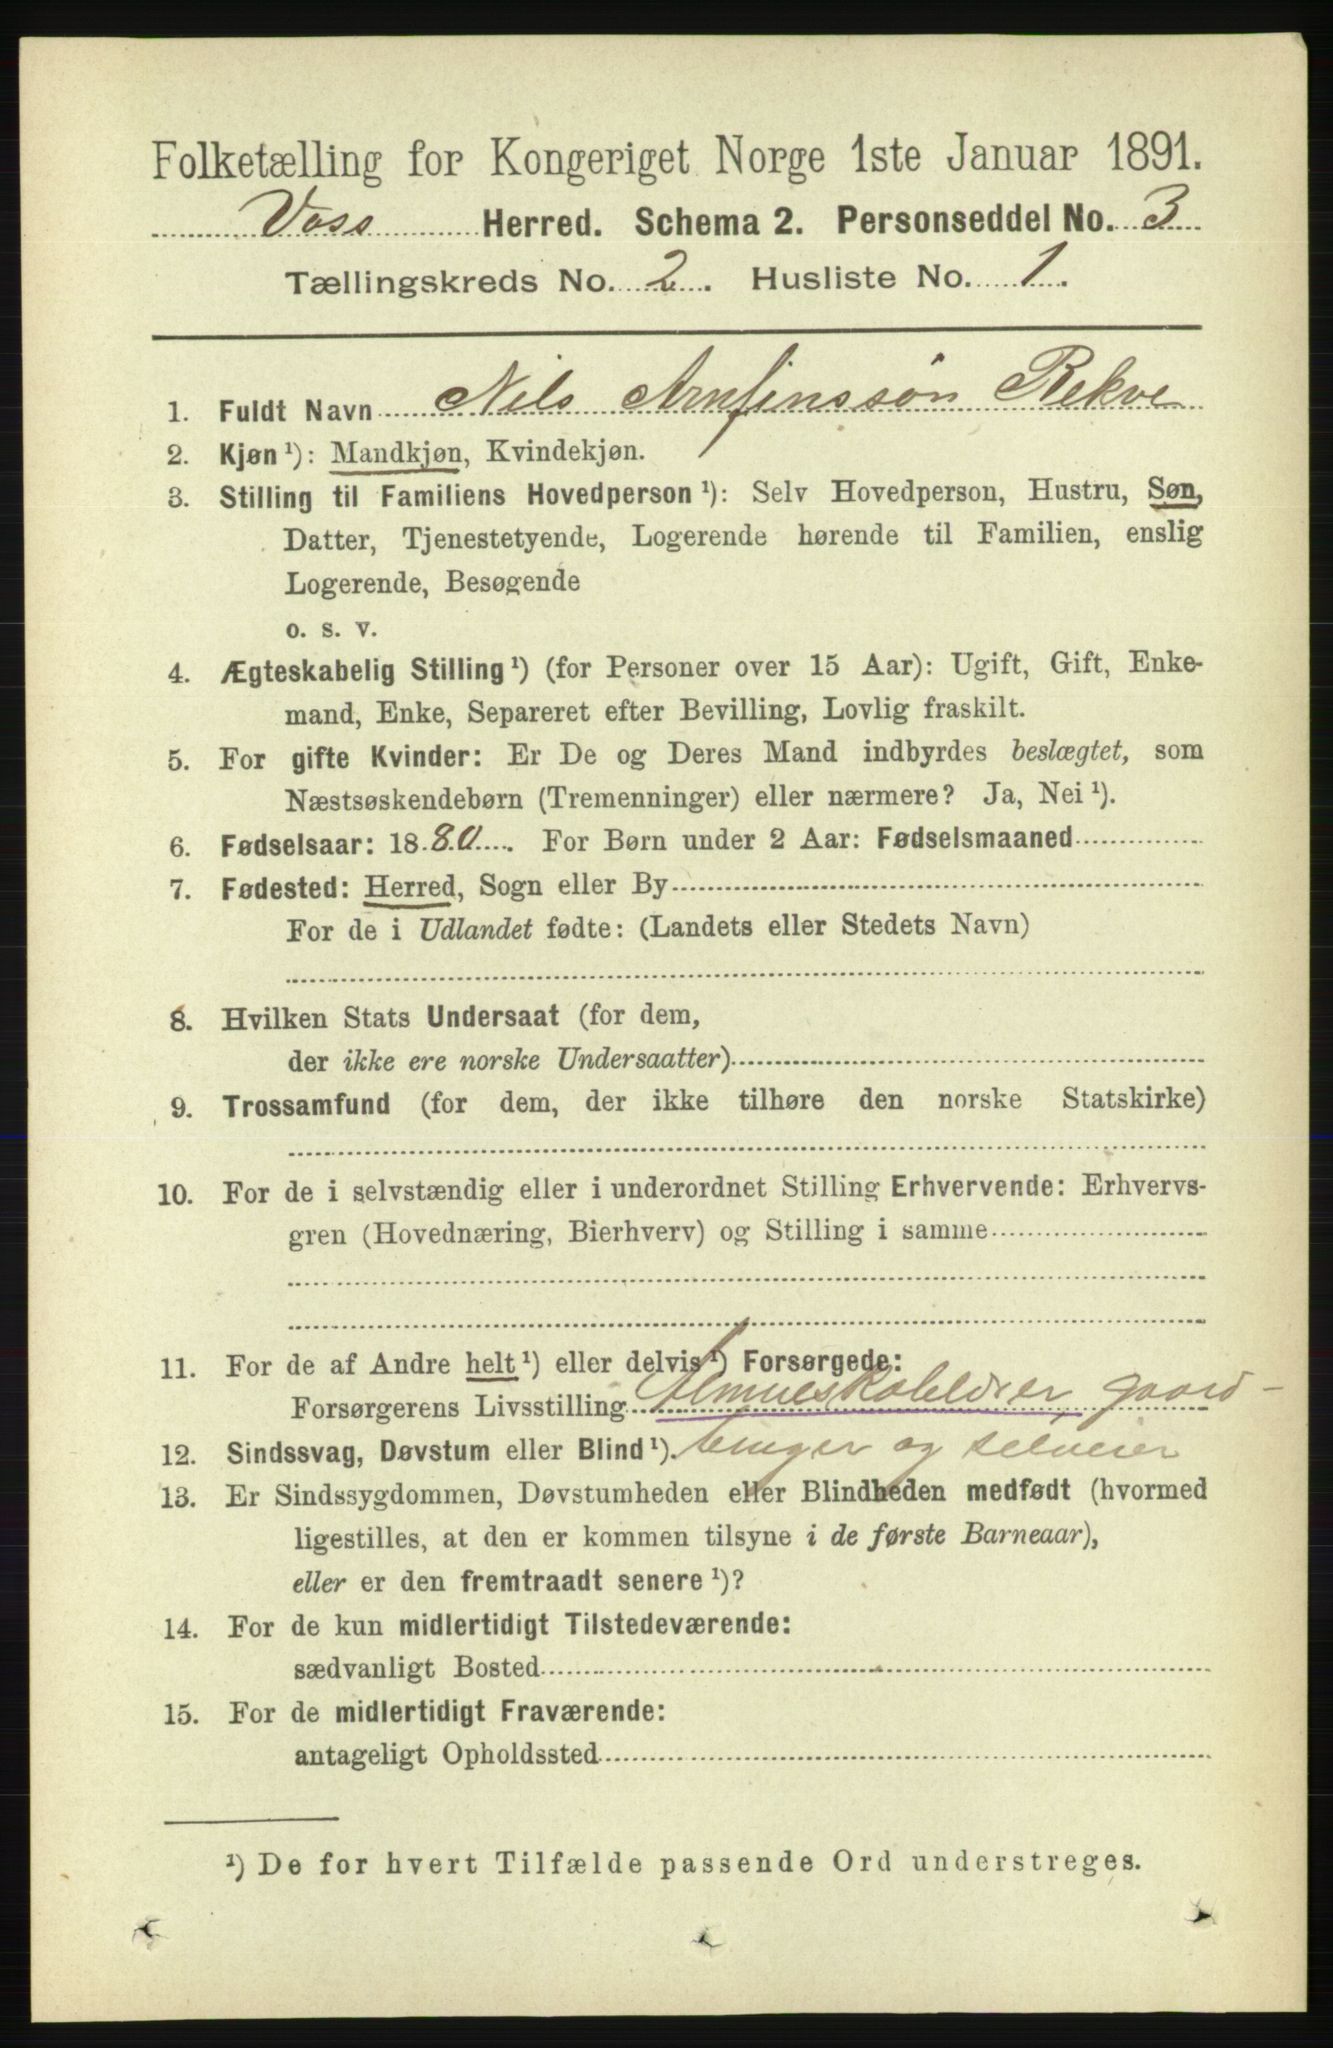 Folketælling for Kongeriget Norge 1ste Januar 1891.
Voss Herred. Schema 2. Personseddel No. 3
Tællingskreds No. 2. Husliste No. 1.
1. Fuldt Navn Nils Arnfinssøn Rekve
2. Kjøn ¹): Mandkjøn, Kvindekjøn.
3. Stilling til Familiens Hovedperson ¹): Selv Hovedperson, Hustru, Søn,
Datter, Tjenestetyende, Logerende hørende til Familien, enslig
Logerende, Besøgende
o. s. v.
4. Ægteskabelig Stilling ¹) (for Personer over 15 Aar): Ugift, Gift, Enke-
mand, Enke, Separeret efter Bevilling, Lovlig fraskilt.
5. For gifte Kvinder: Er De og Deres Mand indbyrdes beslægtet, som
Næstsøskendebørn (Tremenninger) eller nærmere? Ja, Nei ¹).
6. Fødselsaar: 1880. For Børn under 2 Aar: Fødselsmaaned
7. Fødested: Herred, Sogn eller By
For de i Udlandet fødte: (Landets eller Stedets Navn)
8. Hvilken Stats Undersaat (for dem,
der ikke ere norske Undersaatter)
9. Trossamfund (for dem, der ikke tilhøre den norske Statskirke)
10. For de i selvstændig eller i underordnet Stilling Erhvervende: Erhvervs-
gren (Hovednæring, Bierhverv) og Stilling i samme
11. For de af Andre helt ¹) eller delvis ¹) Forsørgede:
Forsørgerens Livsstilling Almueskolelærer, gaard-
12. Sindssvag, Døvstum eller Blind ¹). bruger og selveier
13. Er Sindssygdommen, Døvstumheden eller Blindheden medfødt (hvormed
ligestilles, at den er kommen tilsyne i de første Barneaar),
eller er den fremtraadt senere ¹)?
14. For de kun midlertidigt Tilstedeværende:
sædvanligt Bosted
15. For de midlertidigt Fraværende:
antageligt Opholdssted
¹) De for hvert Tilfælde passende Ord understreges.